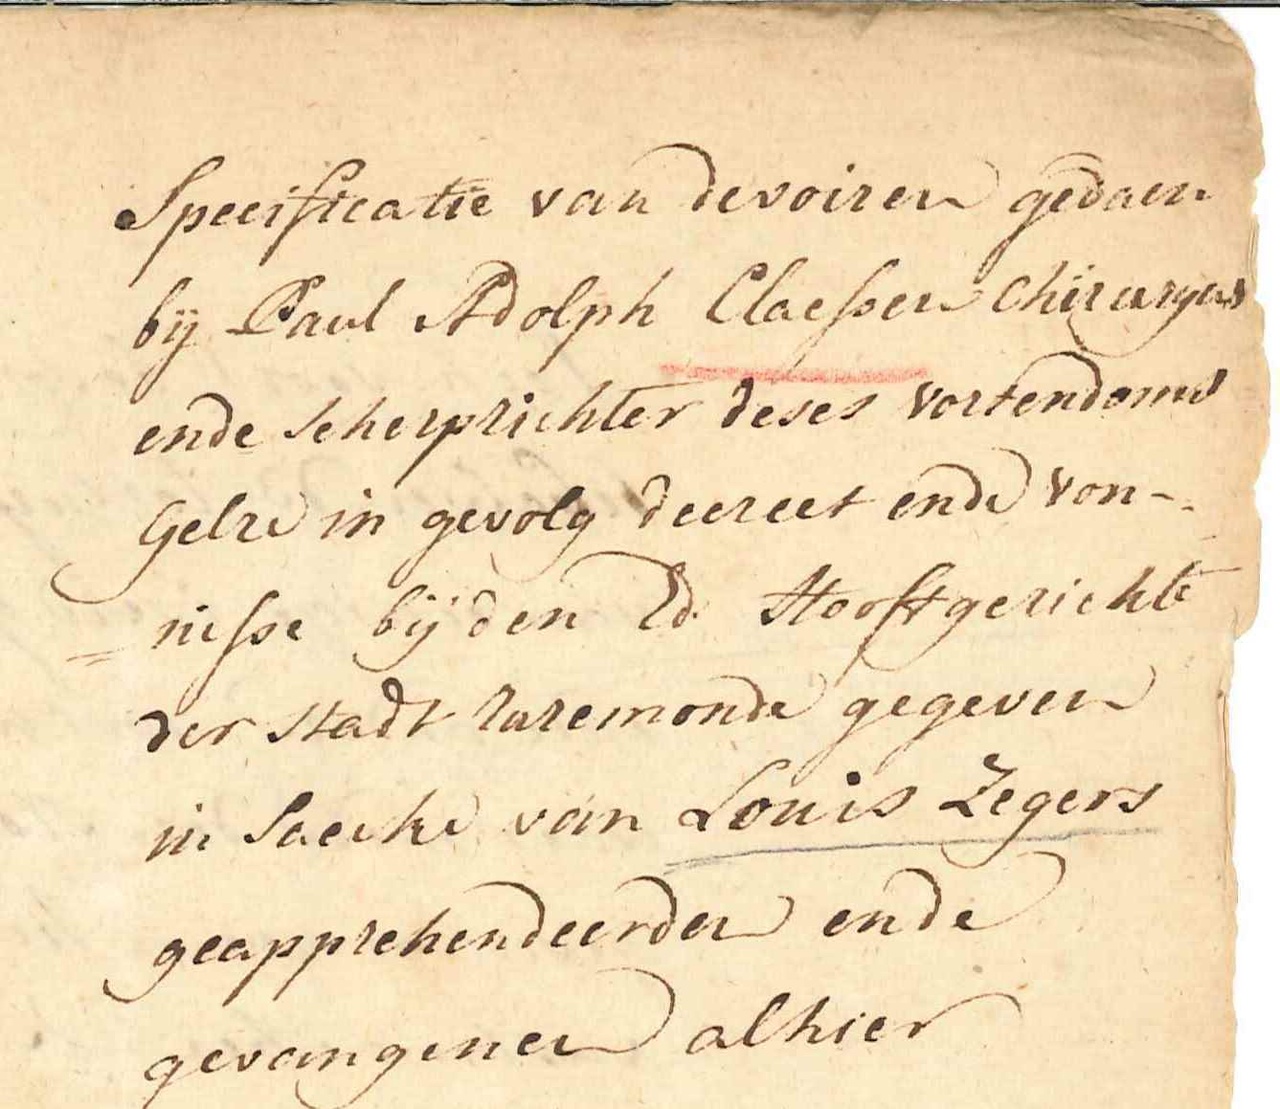 Specificatie van devoiren gedaen
bij Paul Adolph Claessen Chirurgus
ende scherprichter deses vortendoms
Gelre in gevolg decreet ende von-
nisse bij den Ed. Hooftgerichte
der stadt ruremonde gegeven
in saecke van Louis Zegers
geapprehendeerden ende
gevangenen alhier